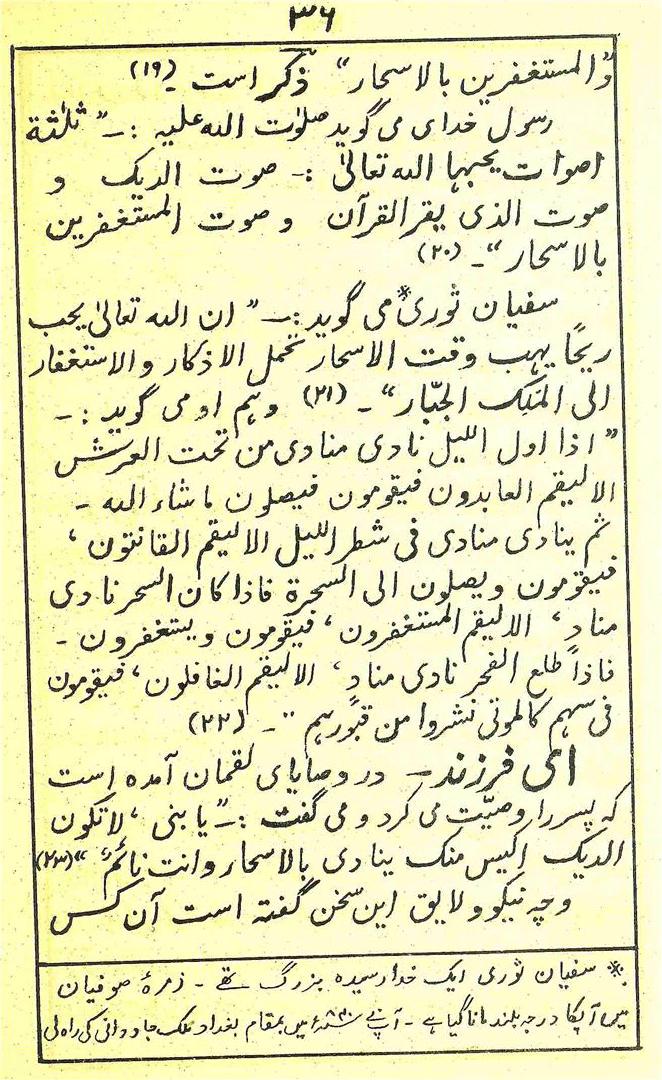 ۳۶
والمستغفرین بالاسحار“ ذکر است ۔ (۱۹)
رسول خدای می گوید صلوٰت اللہ علیہ :۔ ” ثلٰثة
اصوات یحبہا اللہ تعالیٰ :۔ صوت الدیک و
صوت الذی یقرالقرآن و صوت المستغفرین
بالاسحار“۔ (۲۰)
سفیان ثوری* می گوید :۔ ” ان اللہ تعالیٰ یحب
ریحًا یہب وقت الاسحار تحمل الاذکار والاستغفار
الی المَلِک الجبّار“ ۔ (۲۱) وہم او می گوید :۔
” اذا اول اللیل نادی منادی من تحت العرش
الا لیقم العابدون فیقومون فیصلون ماشاء اللہ ۔
ثم ینادی منادی فی شطر اللیل الا لیقم القانتون ،
فیقومون و یصلون الی السحرة فاذا کان السحر نادی
منادٍ ، الا لیقم المستغفرون ، فیقومون و یستغفرون ۔
فاذا طلع الفجر نادی منادٍ ، الا لیقم الغافلون ، فیقومون
فی سہم کالموتی نشروا من قبورہم “ ۔ (۲۲)
ای فرزند ۔ در وصایای لقمان آمدہ است
کہ پسر را وصیّت می کرد و می گفت :۔ ” یا بنی ، لا تکون
الدیک اکیس منک ینادی بالاسحار وانت نائمٌ “ (۲۳)
وچہ نیکو ولایق این سخن گفتہ است آن کس
* سفیان ثوری ایک خدا رسیدہ بزرگ تھے ۔ زمرۂ صوفیان
میں آپکا درجہ بلند مانا گیا ہے ۔ آپ نے میں بمقام بغداد ملک جاودانی کی راہ لی